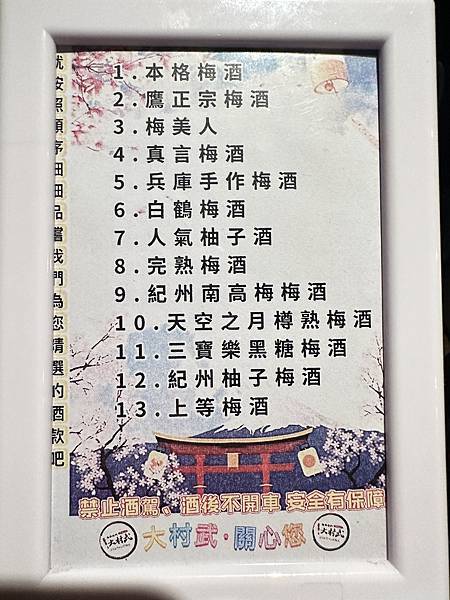 就按照順序細細品嚐我們為您精選的酒款吧
1.本格梅酒
2.鷹正宗梅酒
3.梅美人
4.真言梅酒
5.兵庫手作梅酒
6.白鶴梅酒
7.人氣柚子酒
8.完熟梅酒
9.紀州南高梅梅酒
10.天空之月樽熟梅酒
11.三寶樂黑糖梅酒
12.紀州柚子梅酒
13.上等梅酒
禁止酒駕、酒後不開車 安全有保障
大村武·關心您
大村武
大村武